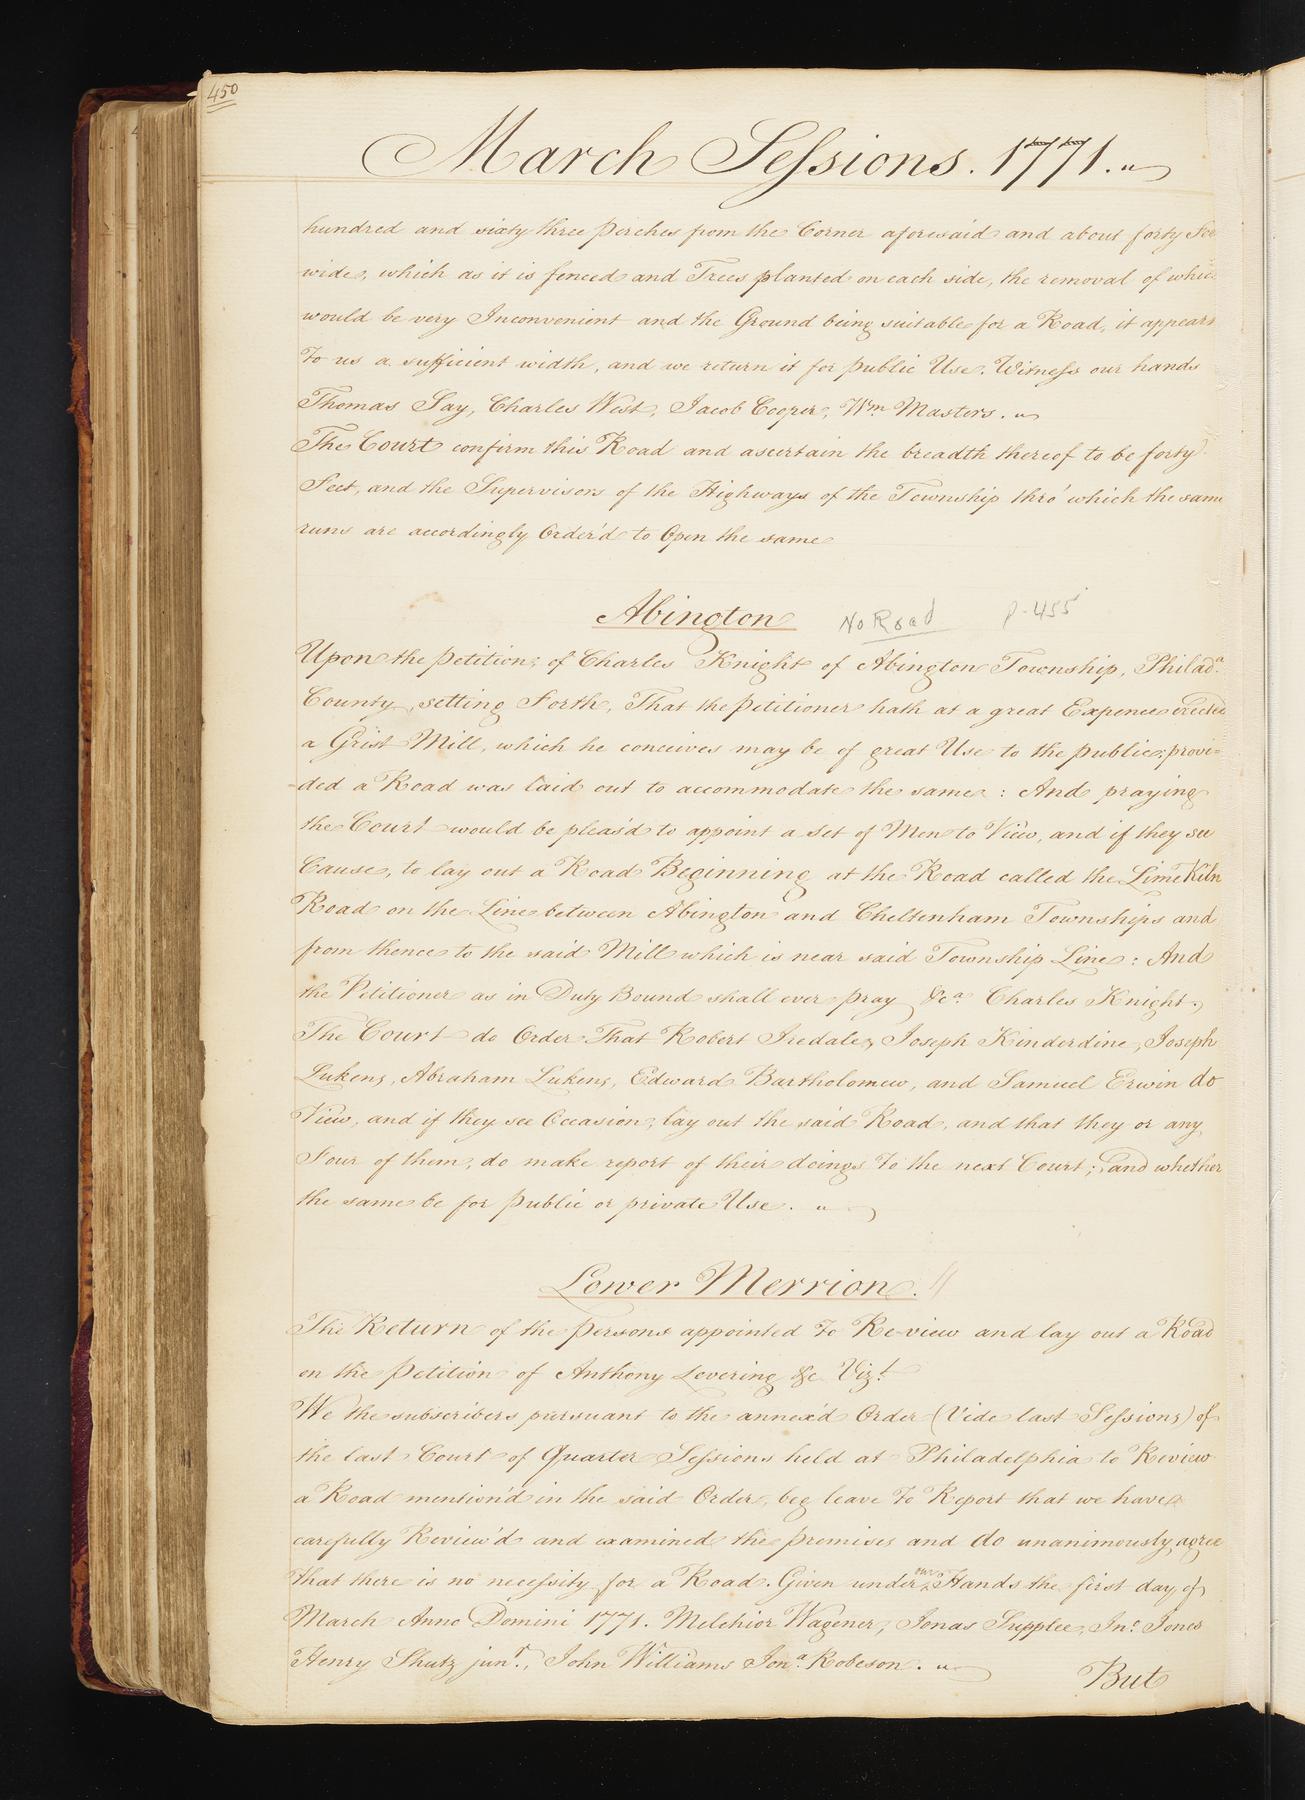 450
March Sessions. 1771.
hundred and sixty three perches from the Corner aforesaid and about forty Fee
wide, which as it is fenced and Trees planted on each side, the removal of which
would be very Inconvenient and the Ground being suitable for a Road, it appears
to us a sufficient width, and we return it for public Use. Witness our hands
Thomas Say, Charles West, Jacob Cooper, Wm. Masters.
The Court confirm this Road and ascertain the breadth thereof to be forty
Feet, and the Supervisors of the Highways of the Township thro' which the same
runs are accordingly Order'd to Open the same
Abington No Road p-455
Upon the petition of Charles Knight of Abington Township, Philada.
County, setting Forth, That the petitioner hath at a great Expence erected
a Grist Mill, which he conceives may be of great Use to the public; provi=
=ded a Road was laid out to accommodate the same: And praying
the Court would be pleas'd to appoint a set of Men to View, and if they see
Cause, to lay out a Road Beginning at the Road called the Lime Kiln
Road on the Line between Abington and Cheltenham Townships and
from thence to the said Mill which is near said Township Line: And
the Petitioner as in Duty Bound shall ever pray &ca. Charles Knight.
The Court do Order That Robert Iredale, Joseph Kinderdine, Joseph
Lukens, Abraham Lukens, Edward Bartholomew, and Samuel Erwin do
View, and if they see Occasion, lay out the said Road, and that they or any
Four of them, do make report of their doings to the next Court; and whether
the same be for public or private Use.
Lower Merrion.
The Return of the persons appointed to Re-view and lay out a Road
on the Petition of Anthony Levering &c Vizt.
We the subscribers pursuant to the annex'd Order (Vide last Sessions) of
the last Court of Quarter Sessions held at Philadelphia to Review
a Road mention'd in the said Order, beg leave to Report that we have
carefully Review'd and examined the premises and do unanimously agree
that there is no necessity for a Road. Given under our Hands the first day of
March Anno Domini 1771. Melchior Wagener, Jonas Supplee, Jno. Jones
Henry Shutz junr., John Williams Jona. Robeson.
But